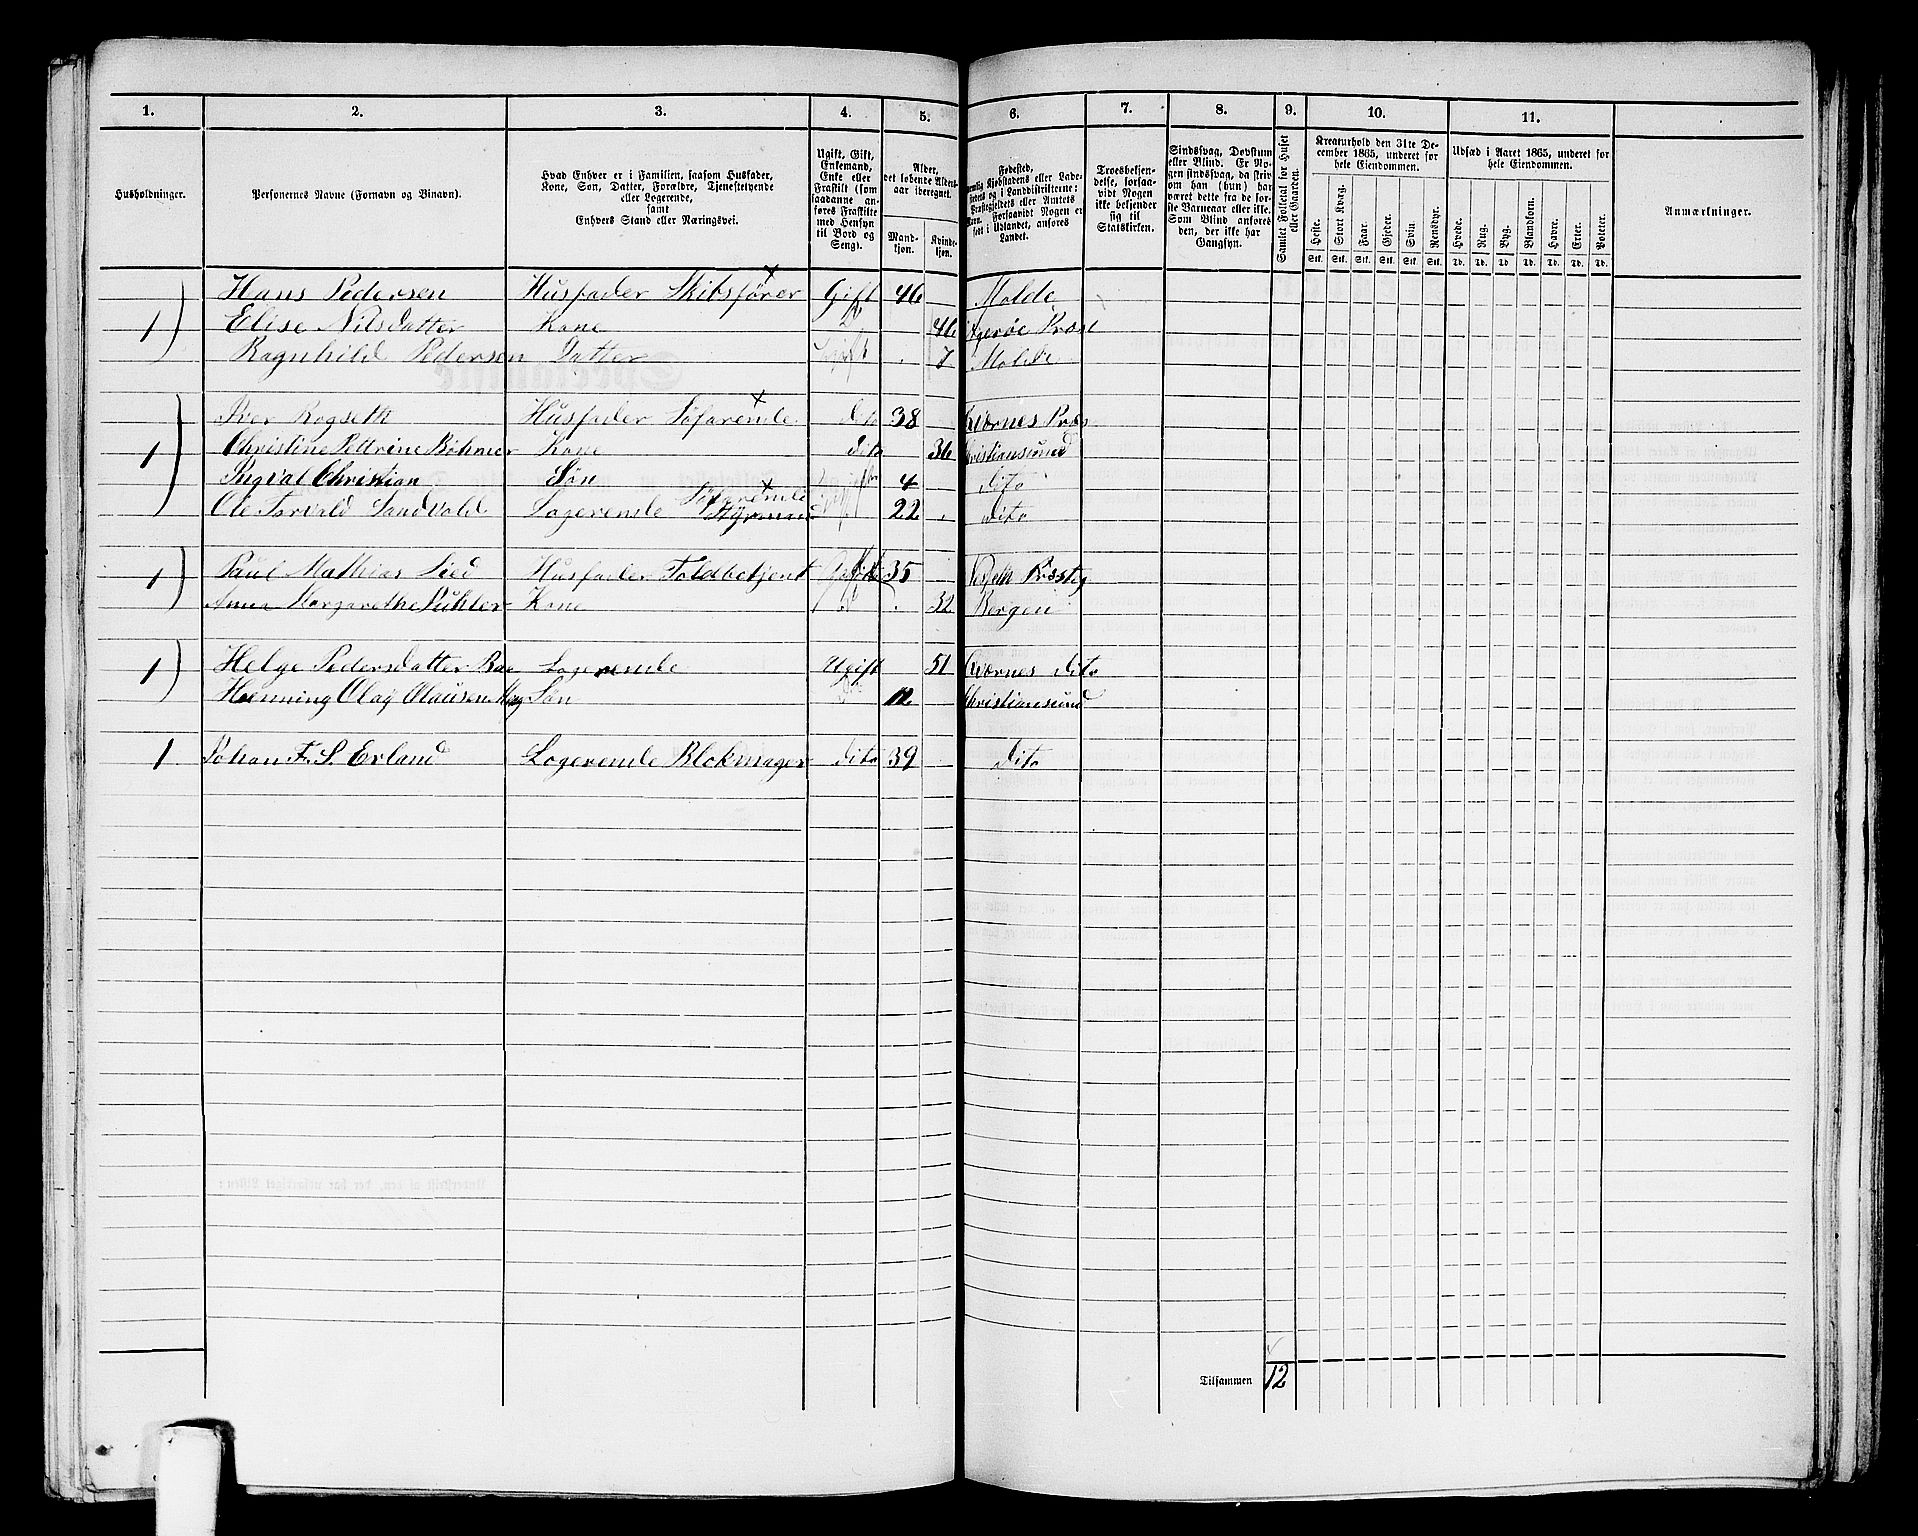 1. 2. 3. 4. 5. 6. 7. 8. 9. 10. 11.
Husholdninger.
Personernes Navne (Fornavn og Binavn).
Hvad Enhver er i Familien, saasom Husfader,
Kone, Søn, Datter, Forældre, Tjenestetyende
eller Logerende,
samt
Enhvers Stand eller Næringsvei.
Ugift, Gift,
Enkemand,
Enke eller
Fraskilt (som
saadanne an-
føres Fraskilte
med Hensyn
til Bord og
Seng).
Alder,
det løbende Alders-
aar iberegnet.
Mand-
kjøn.
Kvinde-
kjøn.
Fødested,
Kjøbstadens eller Lade-
og i Landdistrikterne:
eller Amtets
Forsaavidt Nogen er
født i Udlandet, anføres
Landet.
Troesbekjen-
delse, forsaa-
vidt Nogen
ikke bekjender
sig til
Statskirken.
Sindssvag, Døvstum
eller Blind. Er No-
gen sindssvag, da skriv
om han (hun) har
været dette fra de før-
ste Barneaar eller ikke.
Som Blind anføres
den, der ikke har
Gangsyn.
Samlet Folketal for Huset
eller Gaarden.
Kreaturhold den 31te De-
cember 1865, underet for
hele Eiendommen.
Heste. Stort Kvæg. Faar. Gjeder. Svin Rensdyr.
Stk. Stk. Stk. Stk. Stk. Stk.
Udsæd i Aaret 1865, underet for
hele Eiendommen.
Hvede. Rug. Byg. Blandkorn. Havre. Erter. Poteter.
Td. Td. Td Td. Td. Td. Td.
Anmærkninger.
Hans Pedersen Husfader Skibsfører Gift 46 Molde
1 Elise Nilsdatter Kone 46
Ragnhild Pedersen Datter Ugift 7 Molde
Iver Rogseth Husfader Søfarende dito 38 Kværnes Præs
1 Christine Pettrine Bøhmer Kone dito 36 Christiansund
Ingval Christian Søn 4 dito
Ole Torvald Sandvold Logerende Søfarende Styrmand 22 dito
1 Paul Mathias Lied Husfader Toldbetjent Gift 35
Anna Margarethe Kone 32 Bergen
1 Helge Pedersdatter Logerende Ugift 51 Kværnes dito
Henning Olag Olausen Søn 12 Christiansund
1 Johan F. S. Erland Logerende Blokmager dito 39 dito
Tilsammen 12